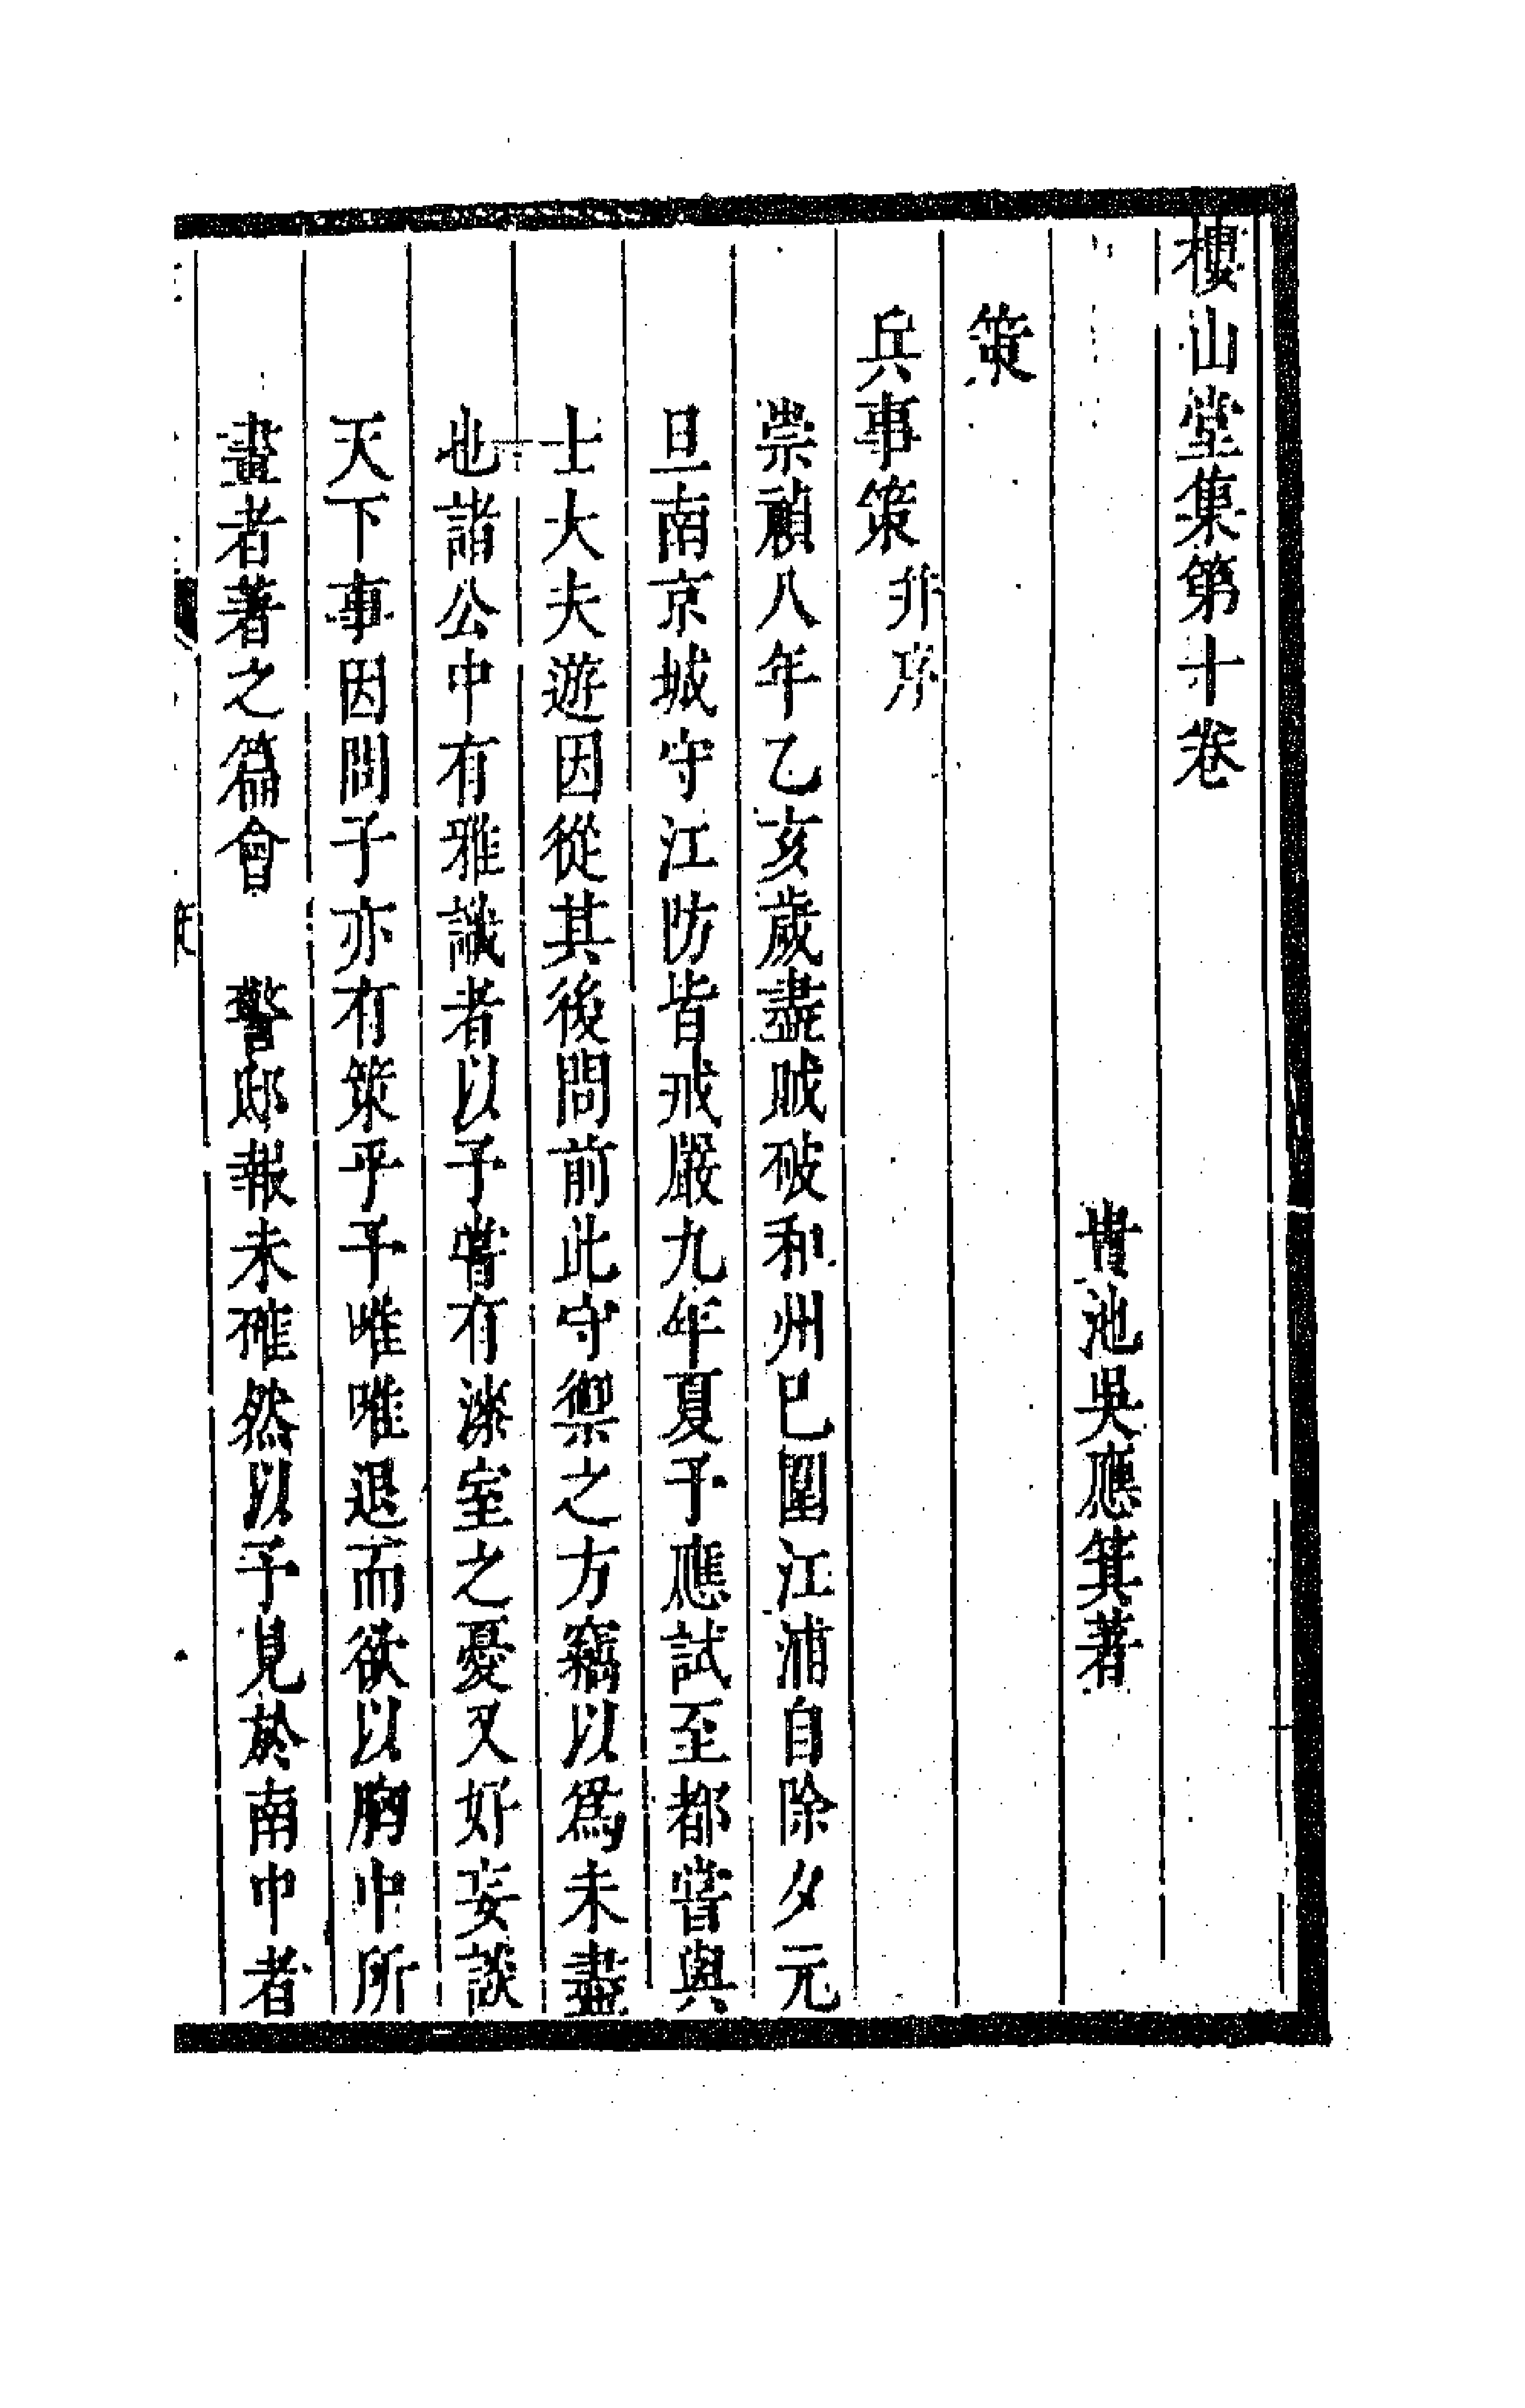 樓山堂集第十卷
貴池吳應箕著
策
兵事策幷序
崇禎八年乙亥歲盡賊破和州已圍江浦自除夕元
旦南京城守江防皆戒嚴九年夏予應試至都嘗與
士大夫遊因從其後問前此守禦之方竊以爲未盡
也諸公中有雅識者以予嘗有漆室之憂又好妄談
天下事因問子亦有策乎予唯唯退而欲以胸中所
畫者著之篇會　警邸報未確然以予見於南中者